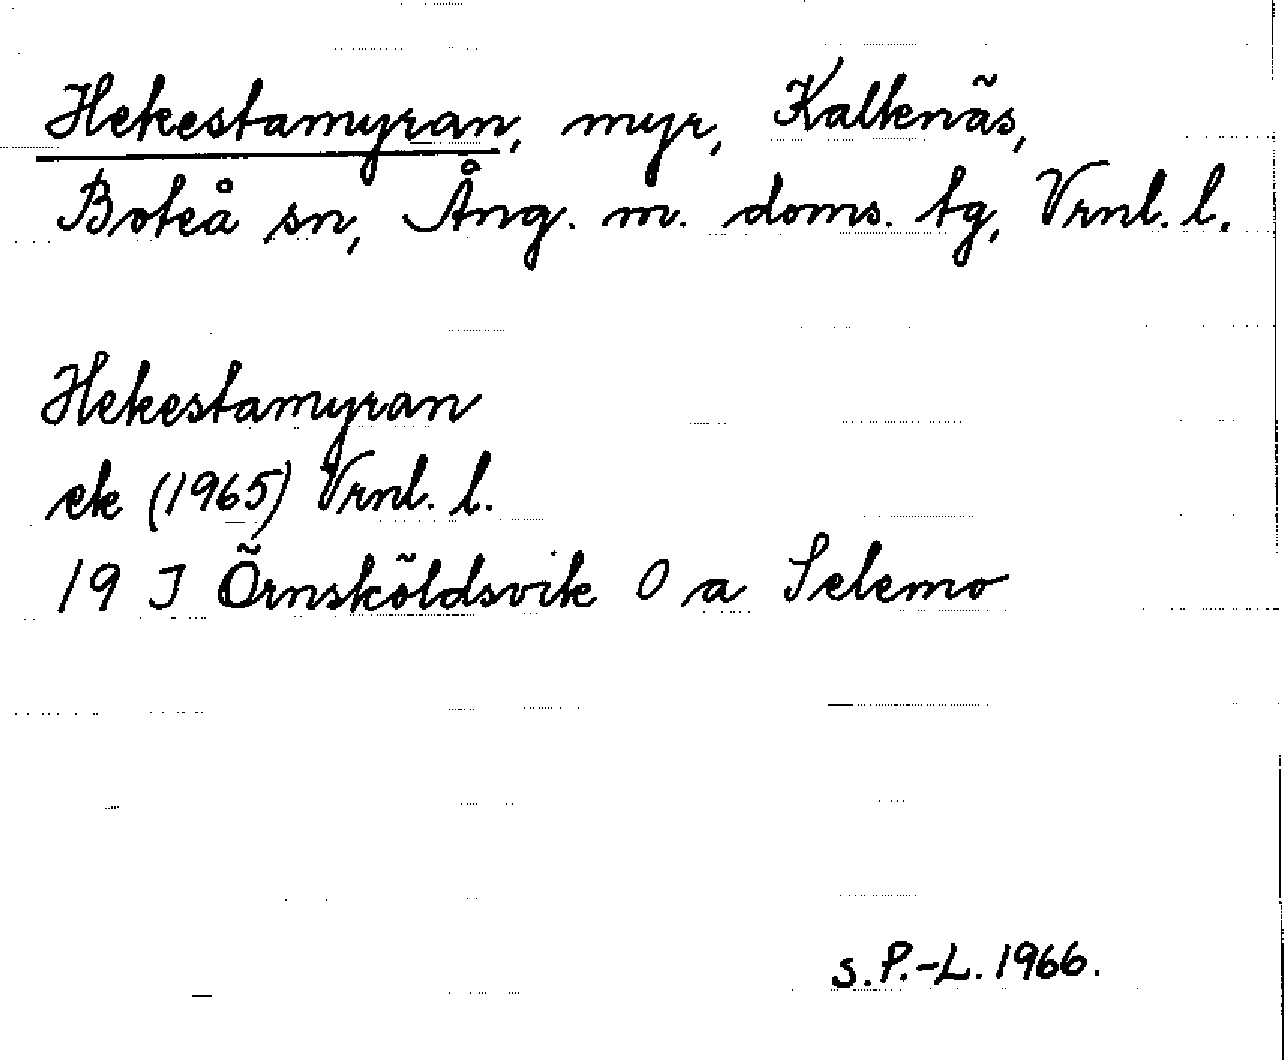 Hekestamyran, myr, Kalknäs,
Boteå sn, Ång. m. doms. tg, Vrnl. l.
Hekestamyran
ek (1965) Vrnl. l.
19 J Örnsköldsvik 0 a Selemo
S.P.-L. 1966.